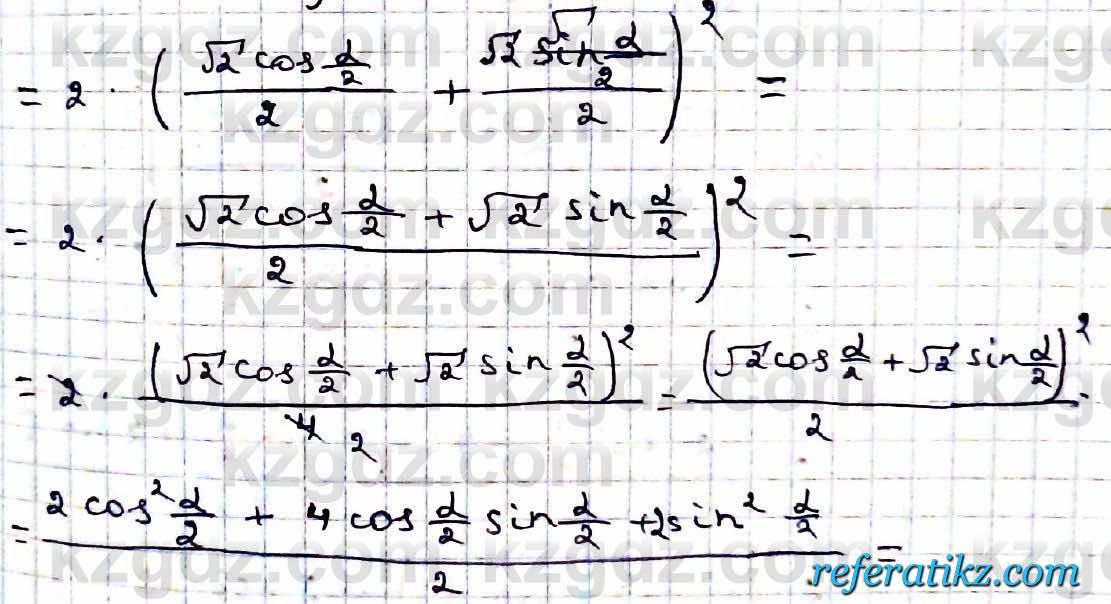 = 2 · (√2 cos α/2 / 2 + √2 sin α/2 / 2)² =
= 2 · ((√2 cos α/2 + √2 sin α/2) / 2)² =
= 2 · (√2 cos α/2 + √2 sin α/2)² / 4 2 = (√2 cos α/2 + √2 sin α/2)² / 2 ·
= (2 cos² α/2 + 4 cos α/2 sin α/2 + 2 sin² α/2) / 2 =
kzgdz.com
referatikz.com